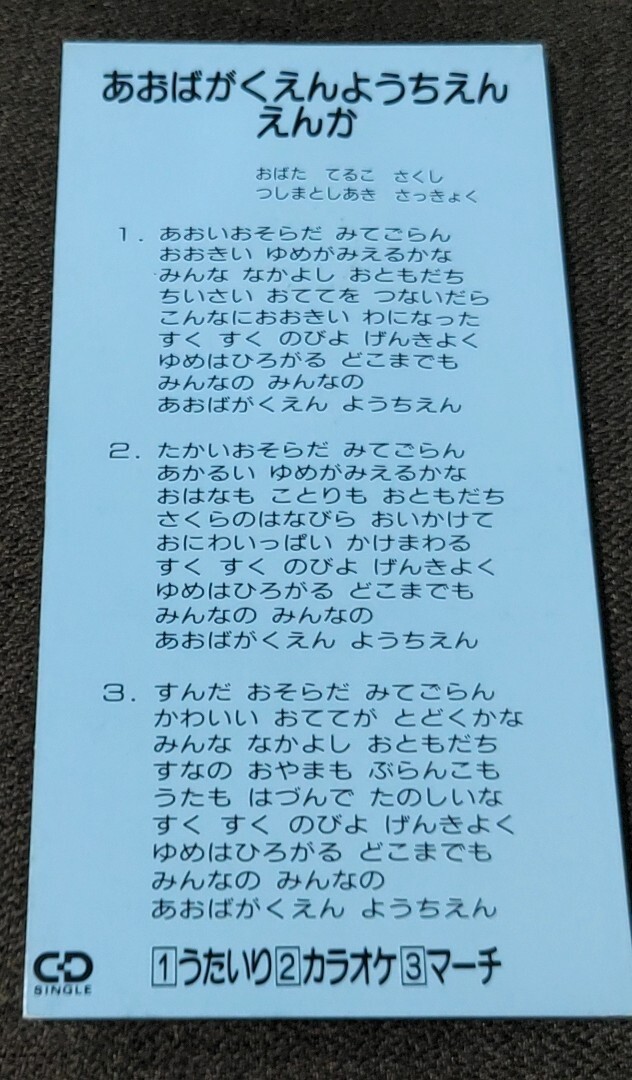 あおばがくえんようちえん
えんか
おばた てるこ さくし
つしまとしあき さっきょく
1. あおいおそらだ みてごらん
おおきい ゆめがみえるかな
みんな なかよし おともだち
ちいさい おててを つないだら
こんなにおおきい わになった
すく すく のびよ げんきよく
ゆめはひろがる どこまでも
みんなの みんなの
あおばがくえん ようちえん
2. たかいおそらだ みてごらん
あかるい ゆめがみえるかな
おはなも ことりも おともだち
さくらのはなびら おいかけて
おにわいっぱい かけまわる
すく すく のびよ げんきよく
ゆめはひろがる どこまでも
みんなの みんなの
あおばがくえん ようちえん
3. すんだ おそらだ みてごらん
かわいい おててが とどくかな
みんな なかよし おともだち
すなの おやまも ぶらんこも
うたも はづんで たのしいな
すく すく のびよ げんきよく
ゆめはひろがる どこまでも
みんなの みんなの
あおばがくえん ようちえん
CD SINGLE
1うたいり2カラオケ3マーチ